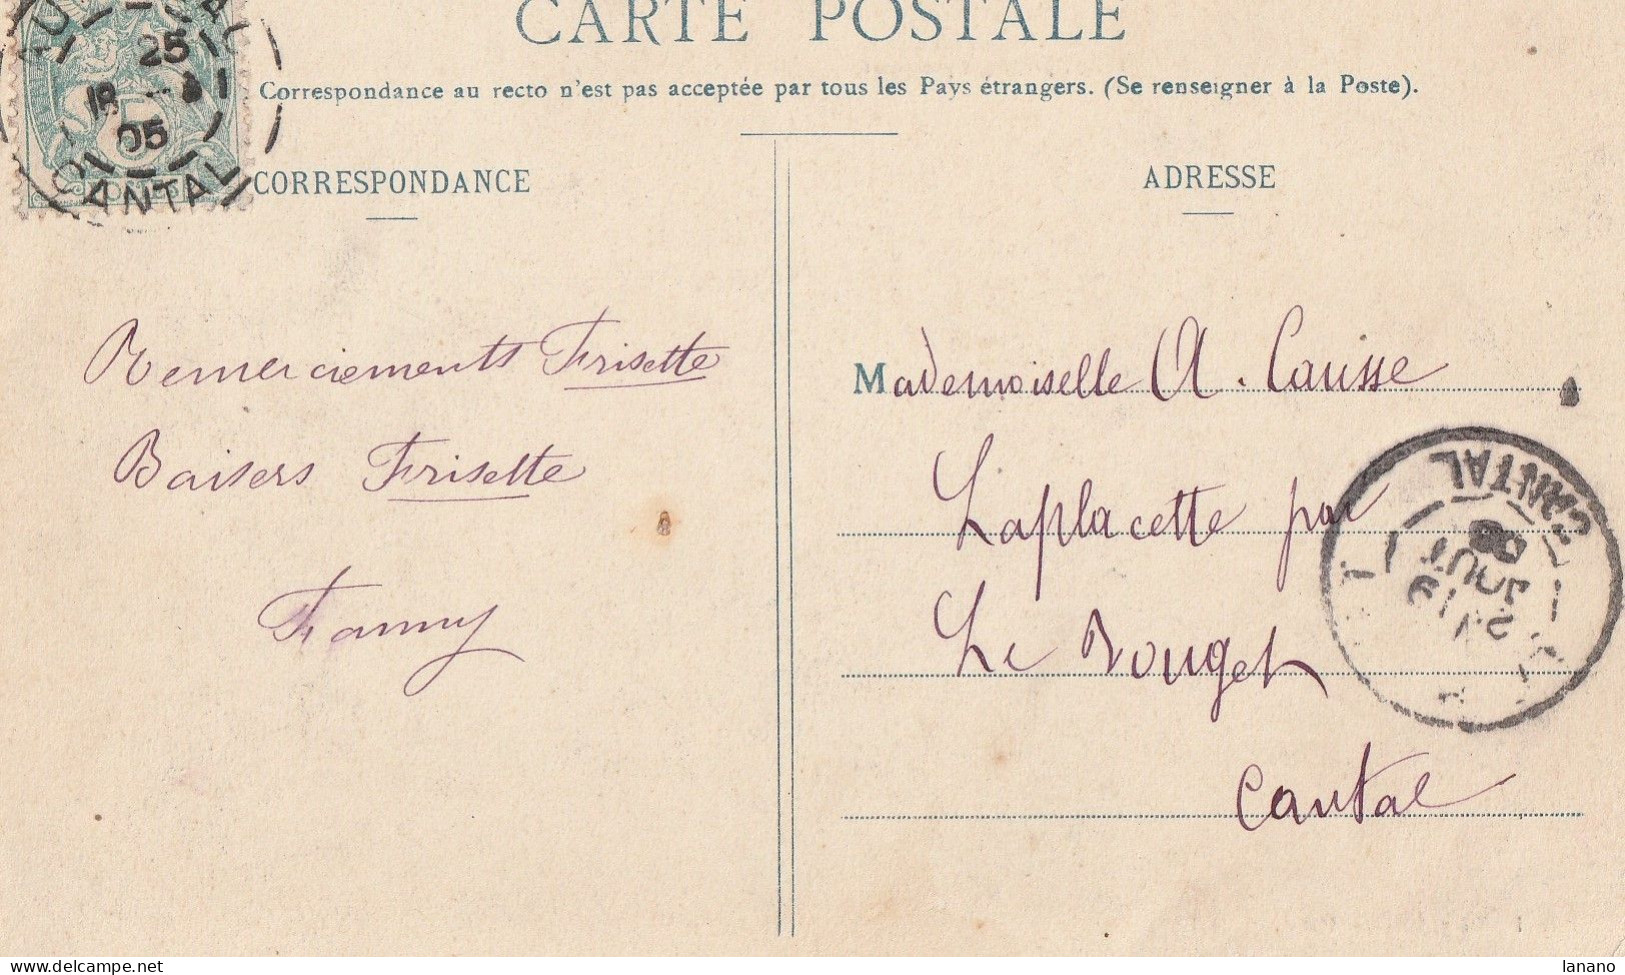 CARTE POSTALE
Correspondance au recto n'est pas acceptée par tous les Pays étrangers. (Se renseigner à la Poste).
25
18
05
CANTAL
CORRESPONDANCE
ADRESSE
Remerciements Frisette
Baisers Frisette
Fanny
Mademoiselle A. Causse
Laplacette par
Le Rouget
Cantal
CANTAL
AOUT
lanano